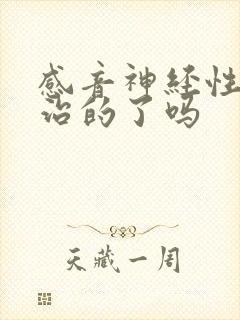 感音神经性
治的了吗
天藏一周